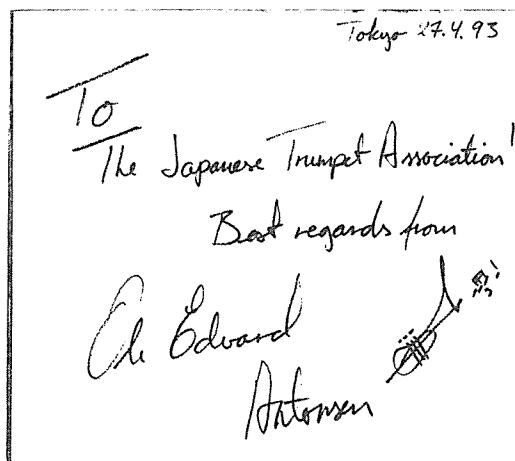 Tokyo 27.4.93
To
The Japanese Trumpet Association!
Best regards from
Ole Edvard
Antonsen